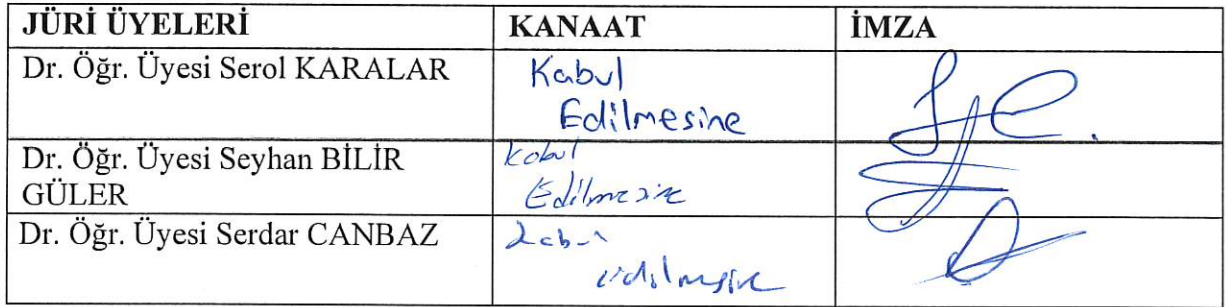 JÜRİ ÜYELERİ KANAAT İMZA
Dr. Öğr. Üyesi Serol KARALAR Kabul
Edilmesine
Dr. Öğr. Üyesi Seyhan BİLİR Kabul
GÜLER Edilmesine
Dr. Öğr. Üyesi Serdar CANBAZ Kabul
edilmesine